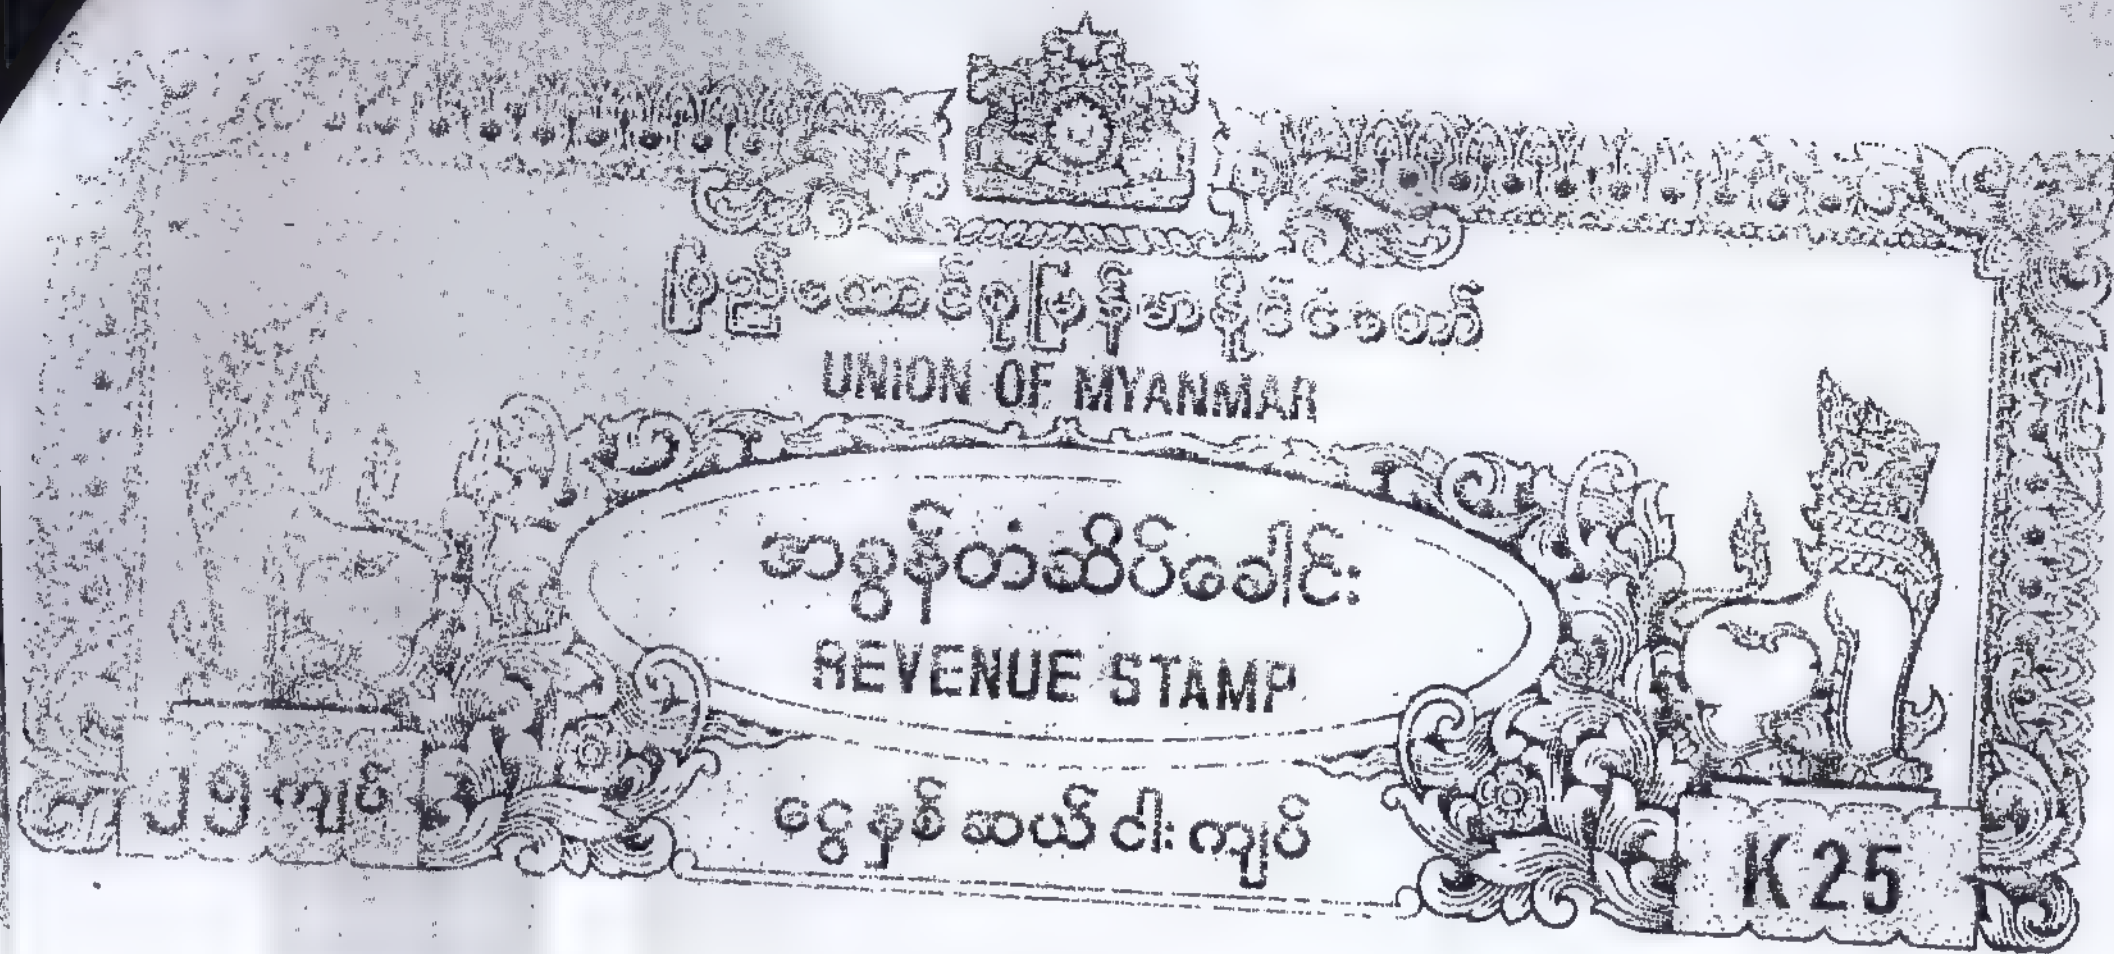 ပြည်ထောင်စုမြန်မာနိုင်ငံတော်
UNION OF MYANMAR
အခွန်တံဆိပ်ခေါင်း
REVENUE STAMP
၂၅ ကျပ်
ငွေနှစ်ဆယ်ငါးကျပ်
K 25